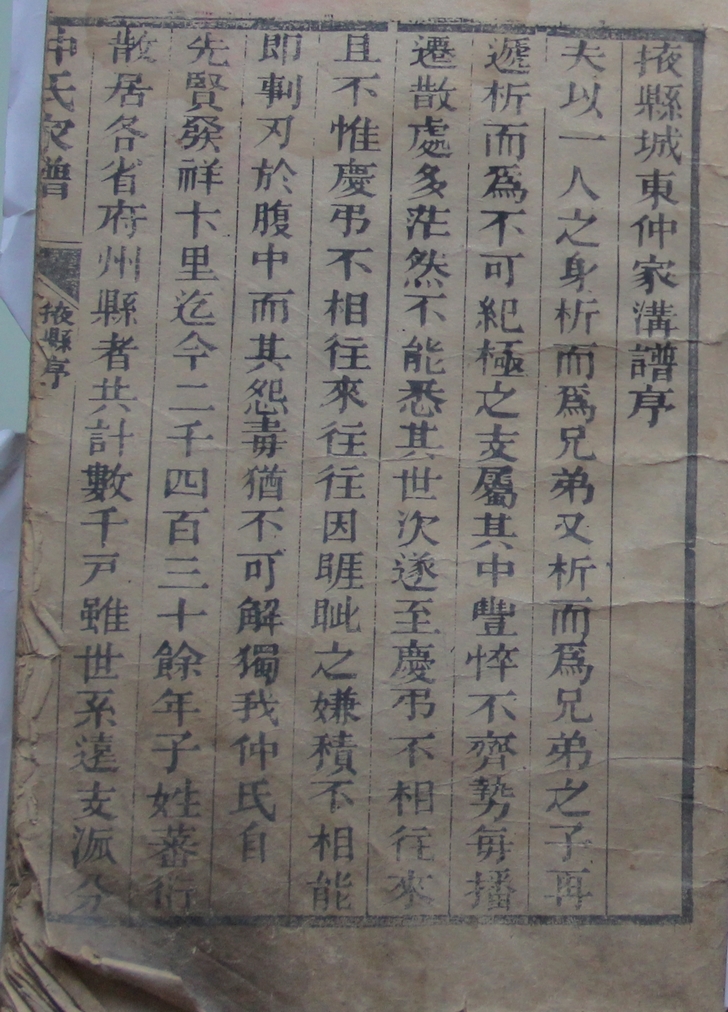 掖縣城東仲家溝譜序
夫以一人之身析而爲兄弟又析而爲兄弟之子再
遞析而爲不可紀極之支屬其中豐悴不齊勢每播
遷散處多茫然不能悉其世次遂至慶弔不相往來
且不惟慶弔不相往來往往因睚眦之嫌積不相能
即剚刃於腹中而其怨毒猶不可解獨我仲氏自
先賢發祥卞里迄今二千四百三十餘年子姓蕃衍
散居各省府州縣者共計數千戸雖世系遠支派分
仲氏家譜
掖縣序